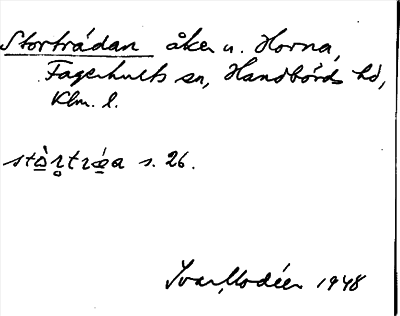 Stortrådan åker u. Horna,
Fagerhults sn, Handbörds hd,
Klm. l.
stò̱r̥trǽ̱a s. 26.
Ivar Modéer 1948